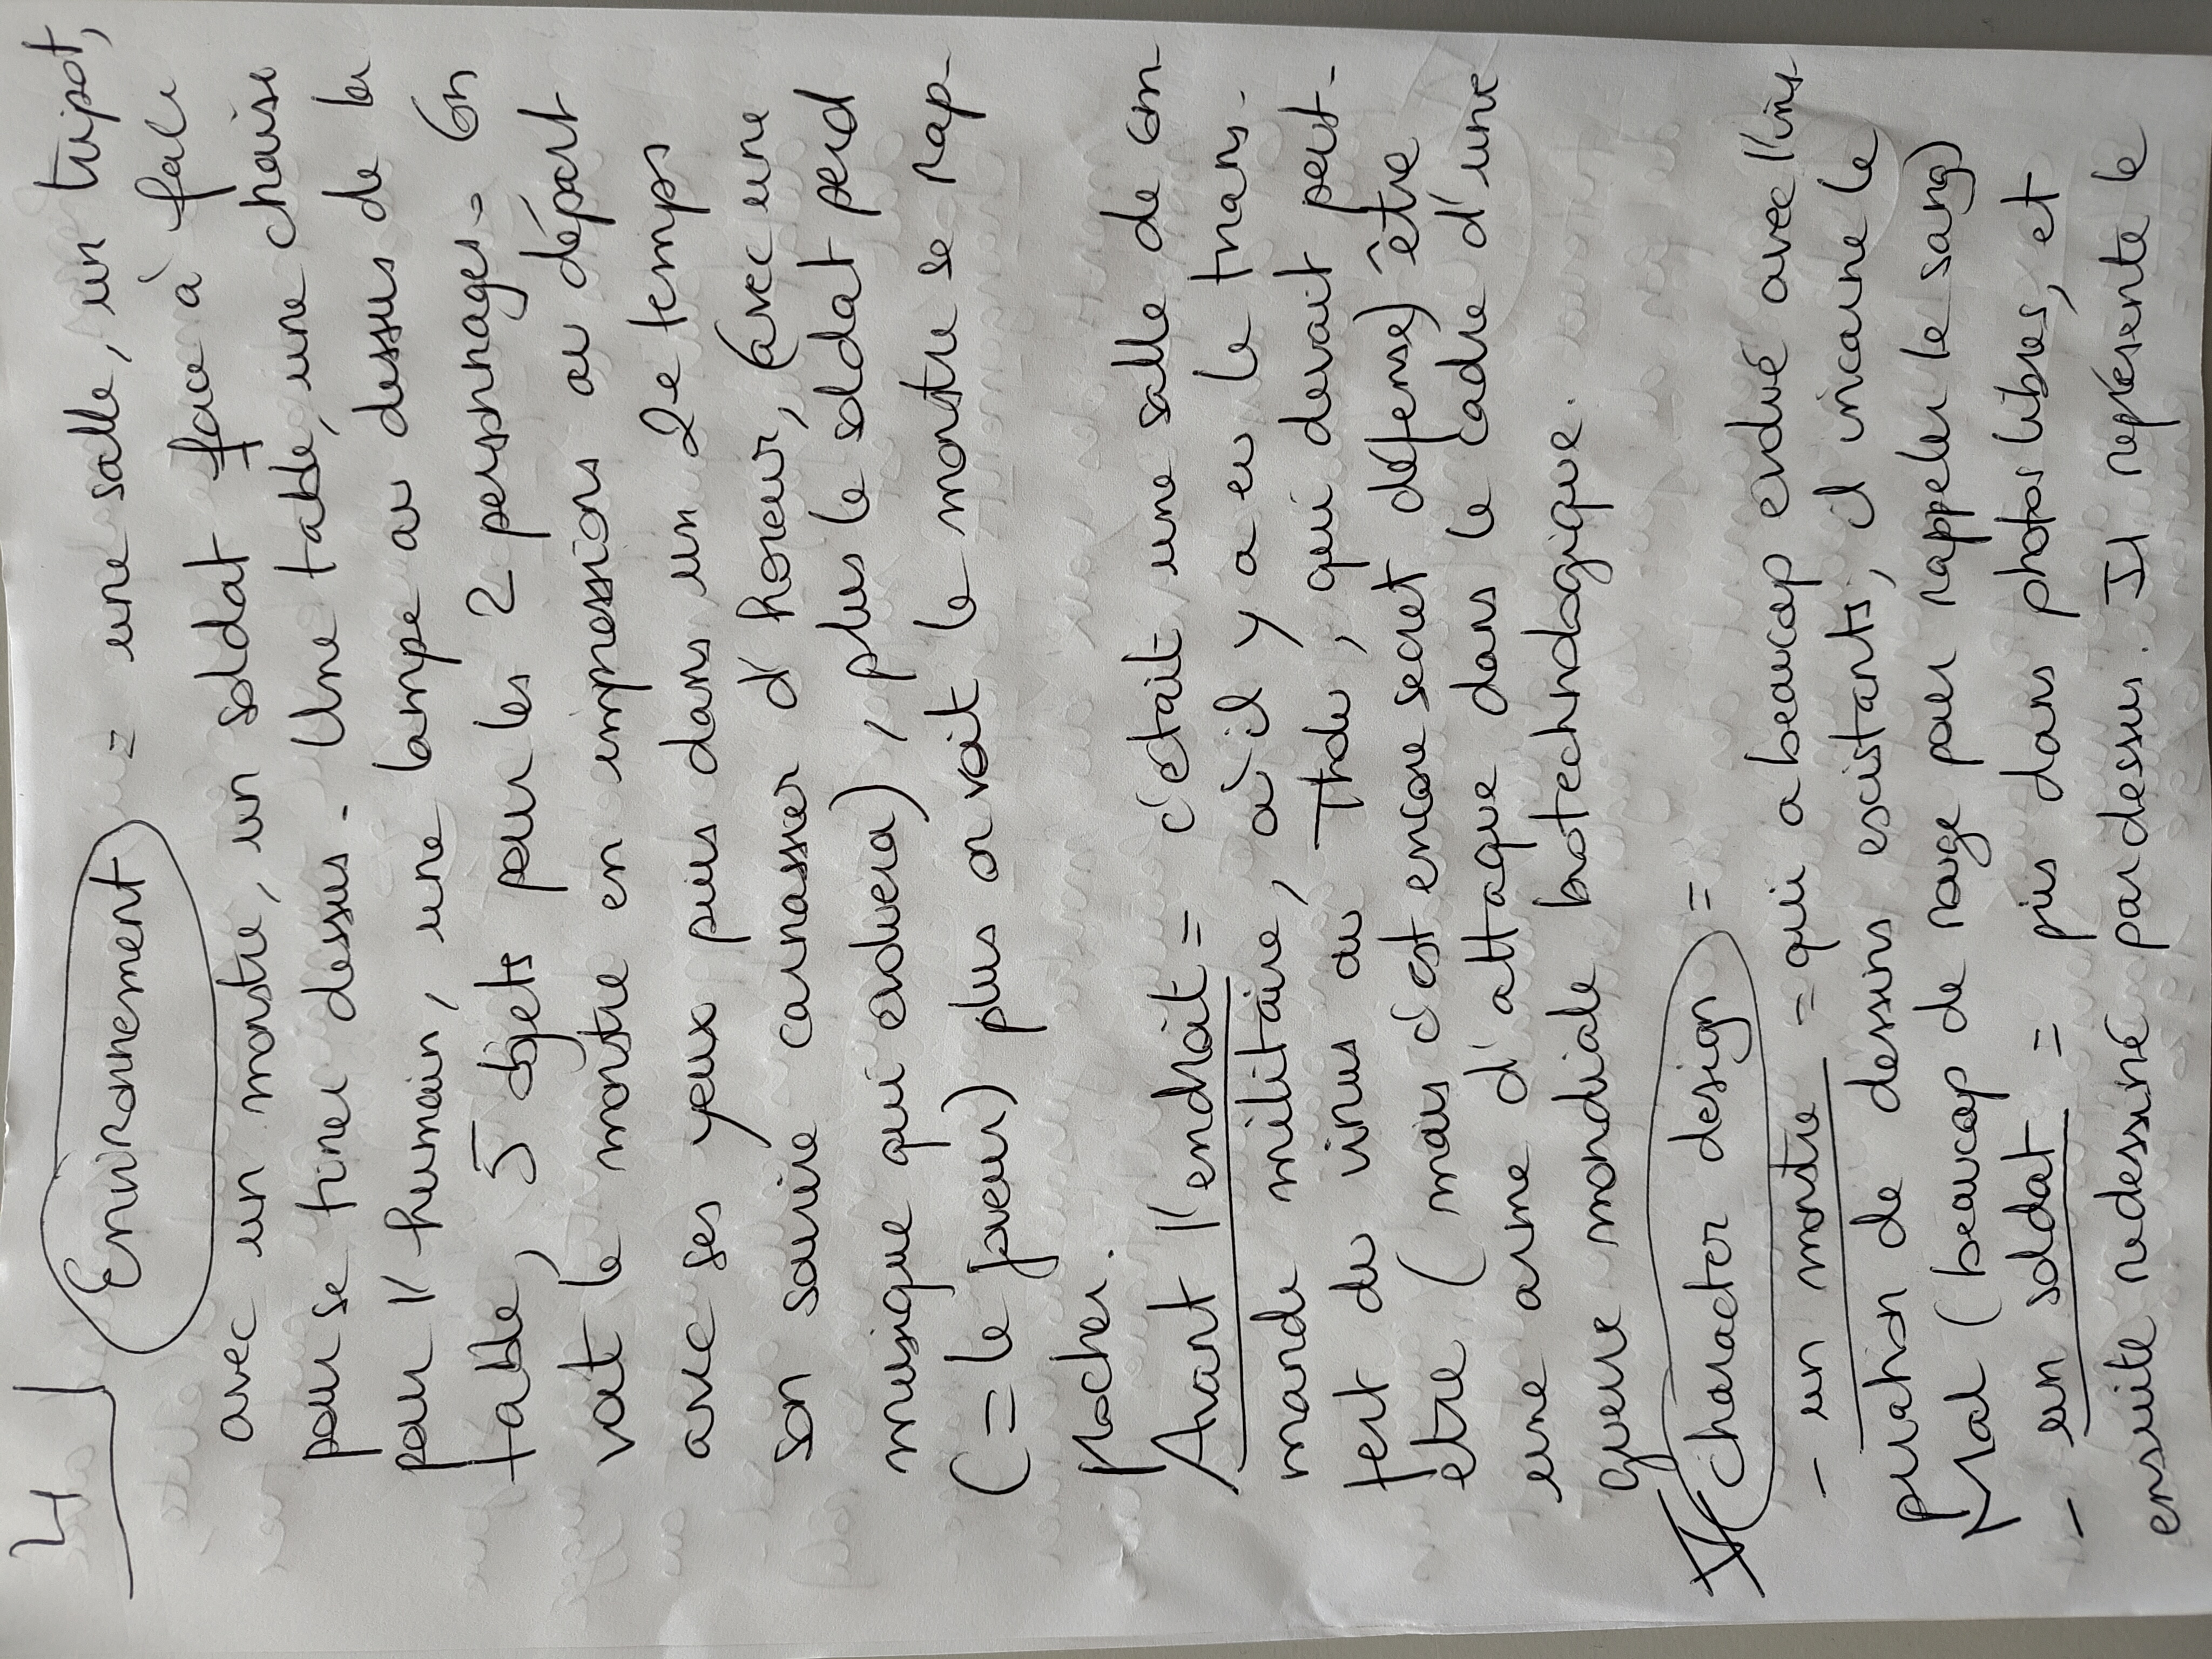 4
Environnement = une salle, un tripot,
avec un monstre, un soldat face à face
pour se tirer dessus. Une table, une chaise
pour l'humain, une lampe au dessus de la
table, 5 objets pour les 2 personnages. On
voit le monstre en impressions au départ
avec ses yeux puis dans un 2e temps
son sourire carnassier d'horeur, (avec une
musique qui evoluera), plus le soldat perd
(= le joueur) plus on voit le monstre se rap-
procher.
Avant l'endroit = c'était une salle de com-
mande militaire, où il y a eu le trans-
fert du virus au                , qui devait peut-
etre (mais c'est encore secret défense) être
une arme d'attaque dans le cadre d'une
guerre mondiale biotechnologique.
V character design =
- un monstre = qui a beaucoup evolué avec l'ins-
piration de dessins existants, il incarne le
Mal (beaucoup de rouge pour rappeler le sang)
- un soldat = pris dans photos libres, et
ensuite redessiné par dessus. Il représente le